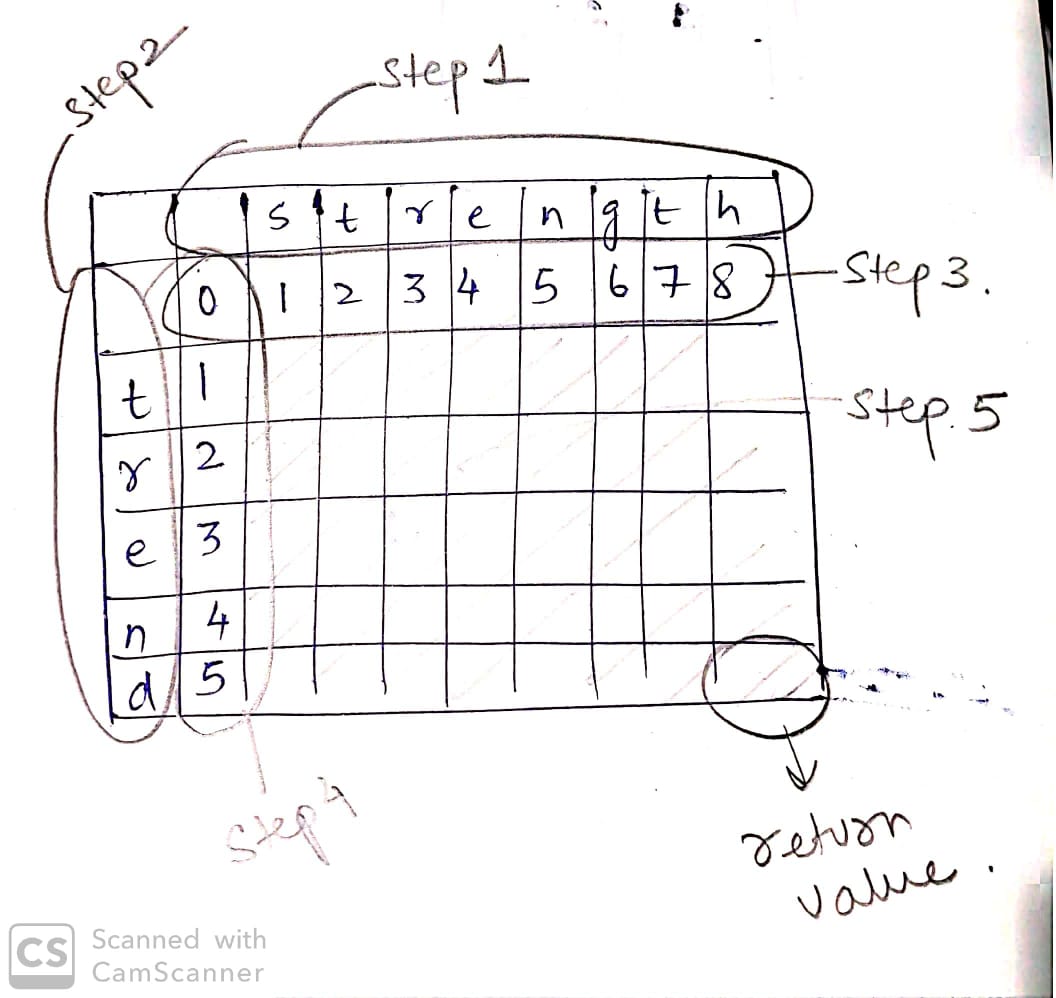 step 2
step 1
s t r e n g t h
0 1 2 3 4 5 6 7 8
step 3.
t 1
step. 5
r 2
e 3
n 4
d 5
step 4
return
value.
CS Scanned with
CamScanner